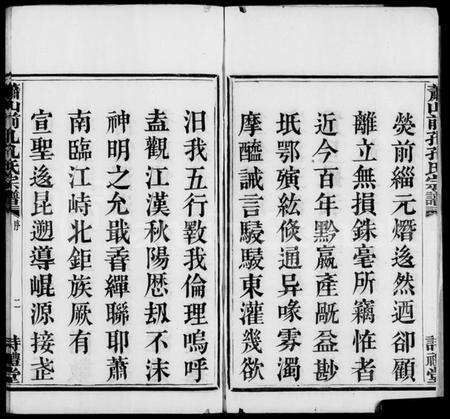 蕭山前孔孔氏宗譜
詩禮堂
熒前緇元熸逡然迺卻顧
離立無損銖毫所竊恠者
近今百年黔嬴產毆益尠
坻鄂紘倏通异喙雰濁
摩醯誡言駸駸東灌幾欲
汨我五行斁我倫理嗚呼
盍觀江漢秋陽歴刼不沬
神明之允戢孴繟聯耶蕭
南臨江峙北鉅族厥有
宣聖逡昆遡導崐源接
蕭山前孔孔氏宗譜
序
二
詩禮堂